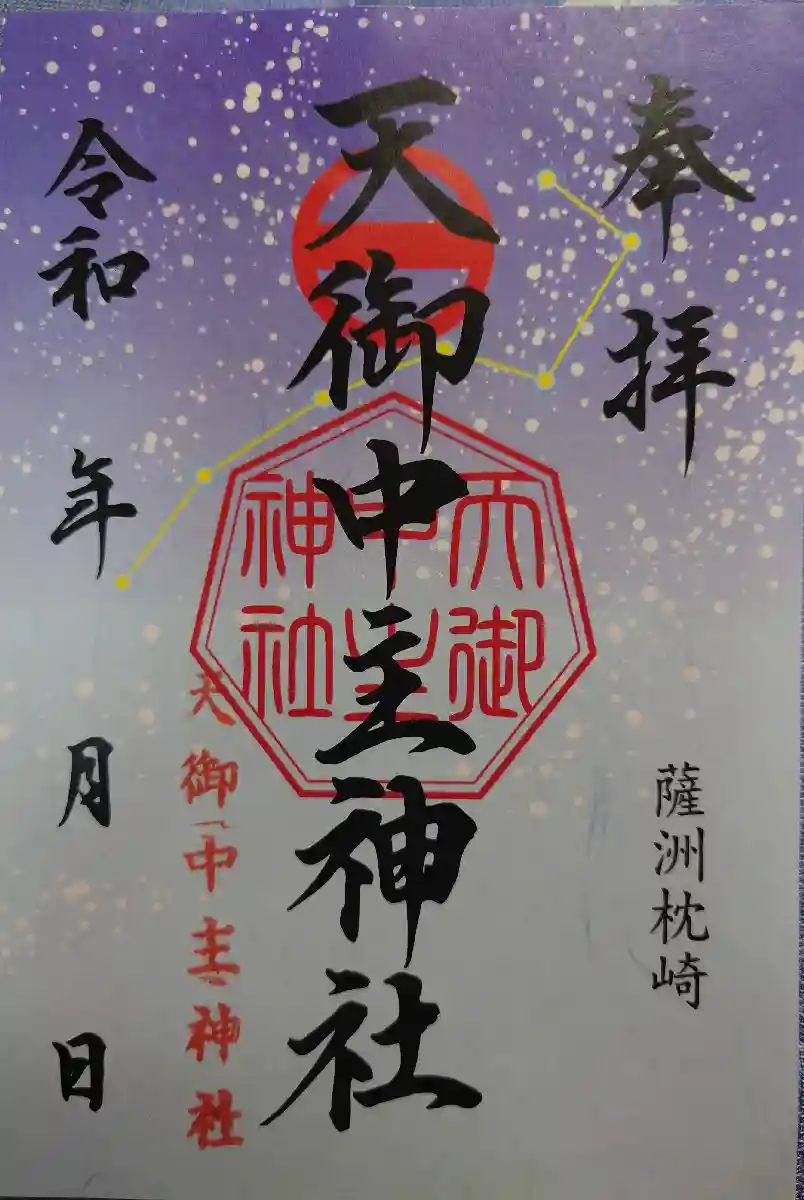 奉拝
薩洲枕崎
天御中主神社
天御
中主
神社
天御中主神社
令和 年 月 日